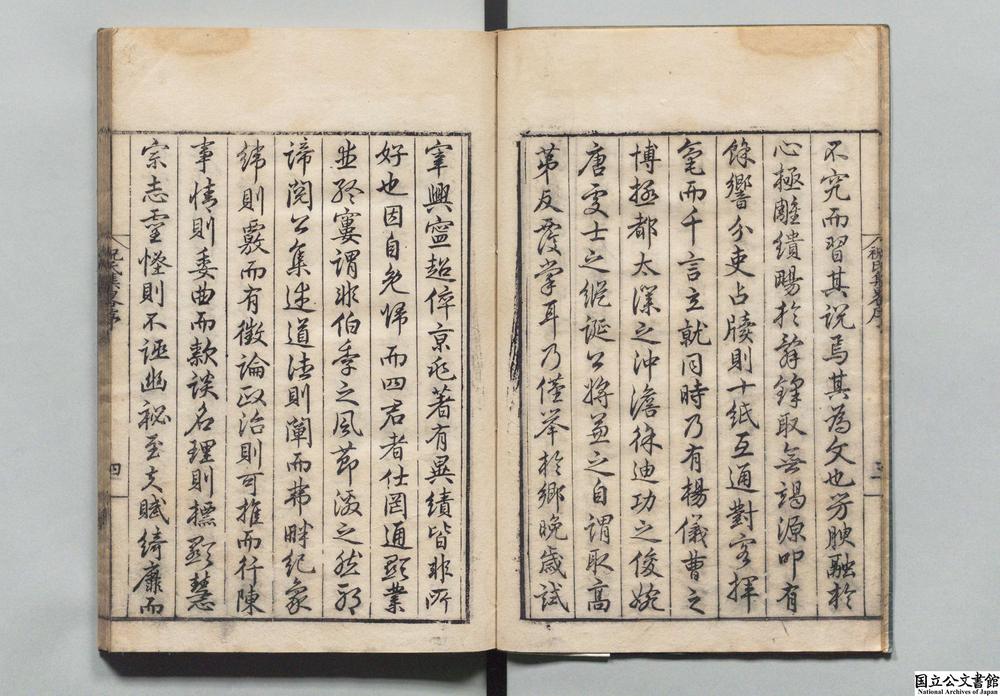 不究而習其說焉其為文也芳腴融於
心極雕繢暢於辭鋒取無竭源叩有
餘響分吏占牘則十紙互通對客揮
毫而千言立就同時乃有楊儀曹之
博極都太僕之沖澹徐迪功之俊婉
唐雯士之縱誕公將兼之自謂取高
第反覆掌耳乃僅舉於鄉晚歲試
宰興寧超倅京兆著有異績皆非所
好也因自免歸而四君者仕罔通顯業
並終窶謂非伯季之風節激之然邪
諦閱公集述道法則闡而弗畔紀象
緯則覈而有徵論政治則可推而行陳
事情則委曲而款談名理則標顯慧
宗志靈怪則不誣幽秘至夫賦綺靡而
祝氏集畧序
三
祝氏集畧序
四
国立公文書館
National Archives of Japan